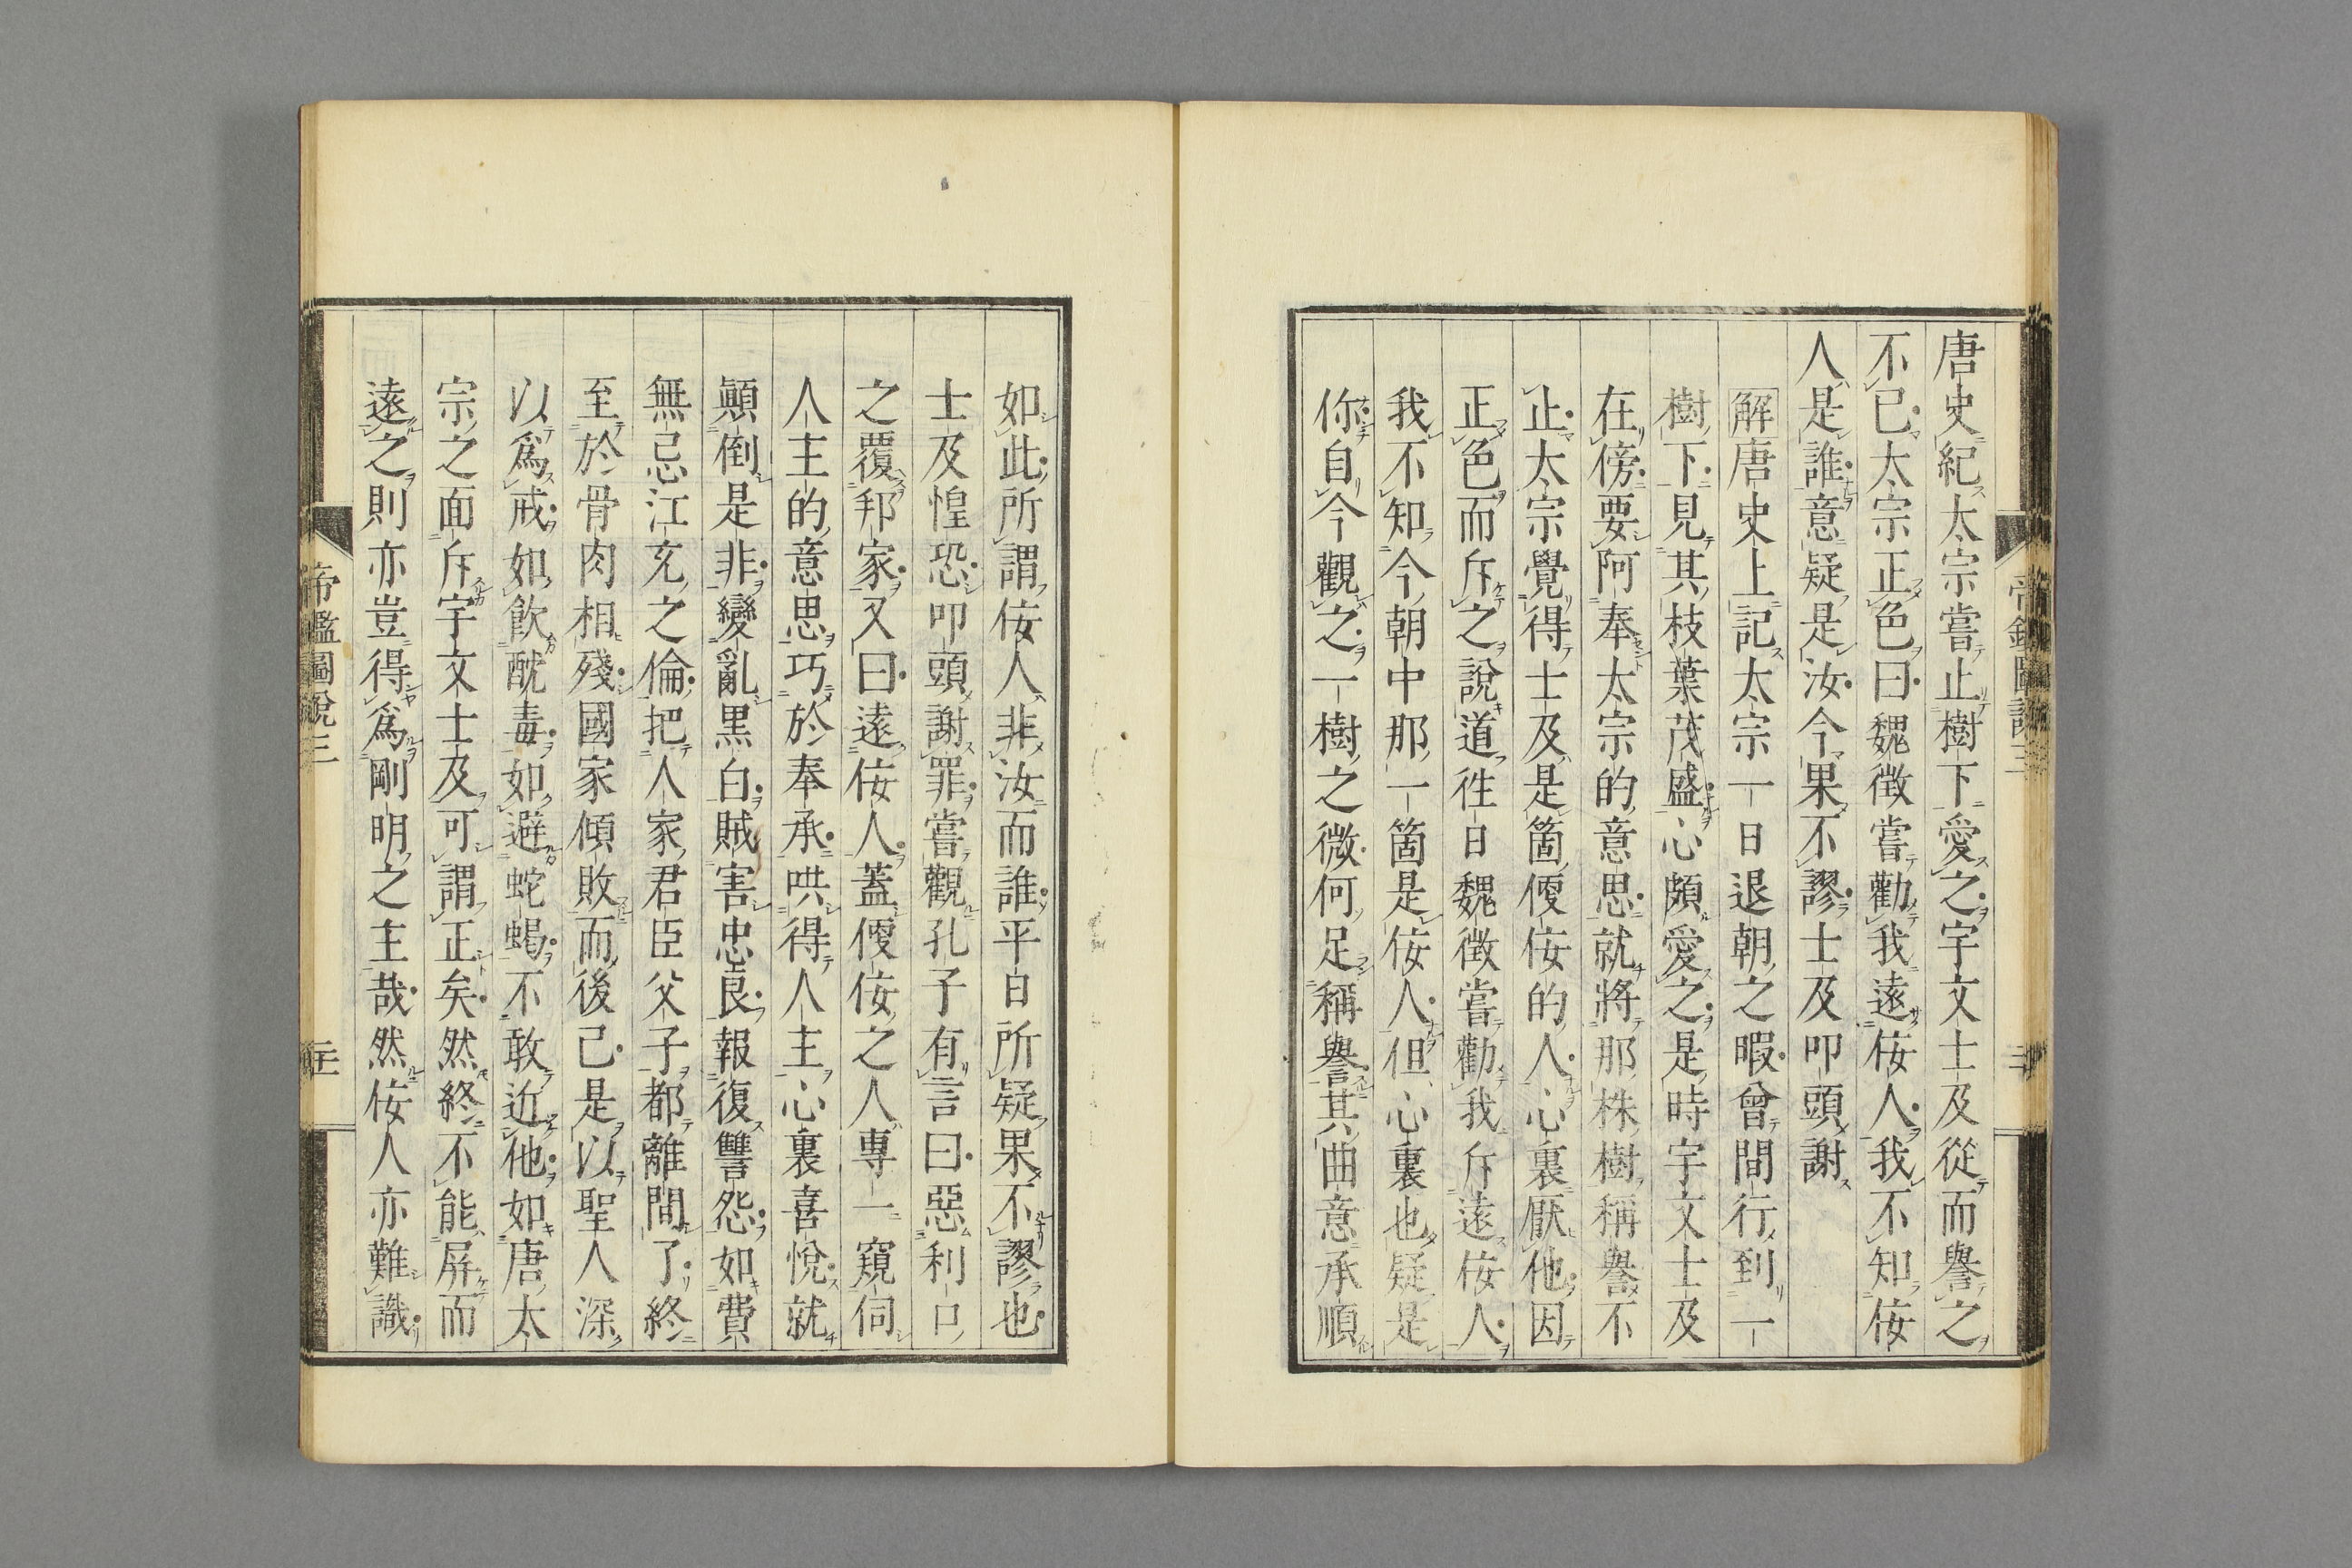 唐史紀太宗嘗止樹下愛之宇文士及從而譽之
不已太宗正色曰魏徵嘗勸我遠佞人我不知佞
人是誰意疑是汝今果不謬士及叩頭謝
解唐史上記太宗一日退朝之暇曾間行到一
樹下見其枝葉茂盛心頗愛之是時宇文士及
在傍要阿奉太宗的意思就將那株樹稱譽不
止太宗覺得士及是箇便佞的人心裏厭他因
正色而斥之說道徃日魏徵嘗勸我斥遠佞人
我不知今朝中那一箇是佞人但心裏也疑是
你自今觀之一樹之微何足稱譽其曲意承順
如此所謂佞人非汝而誰平日所疑果不謬也
士及惶恐叩頭謝罪嘗觀孔子有言曰惡利口
之覆邦家又曰遠佞人蓋便佞之人專一窺伺
人主的意思巧於奉承哄得人主心裏喜悅就
顚倒是非變亂黑白賊害忠良報復讐怨如費
無忌江充之倫把人家君臣父子都離間了終
至於骨肉相殘國家傾敗而後已是以聖人深
以爲戒如飮酖毒如避蛇蝎不敢近他如唐太
宗之面斥宇文士及可謂正矣然終不能屏而
遠之則亦豈得爲剛明之主哉然佞人亦難識
帝鑑圖說三